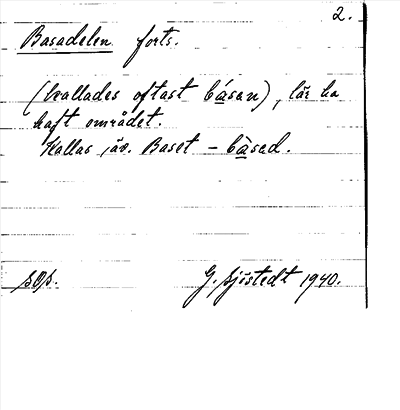 2.
Basadelen forts.
(kallades oftast básan), lär ha
haft området.
Kallas äv. Baset - bàsed.
G. Sjöstedt 1940.